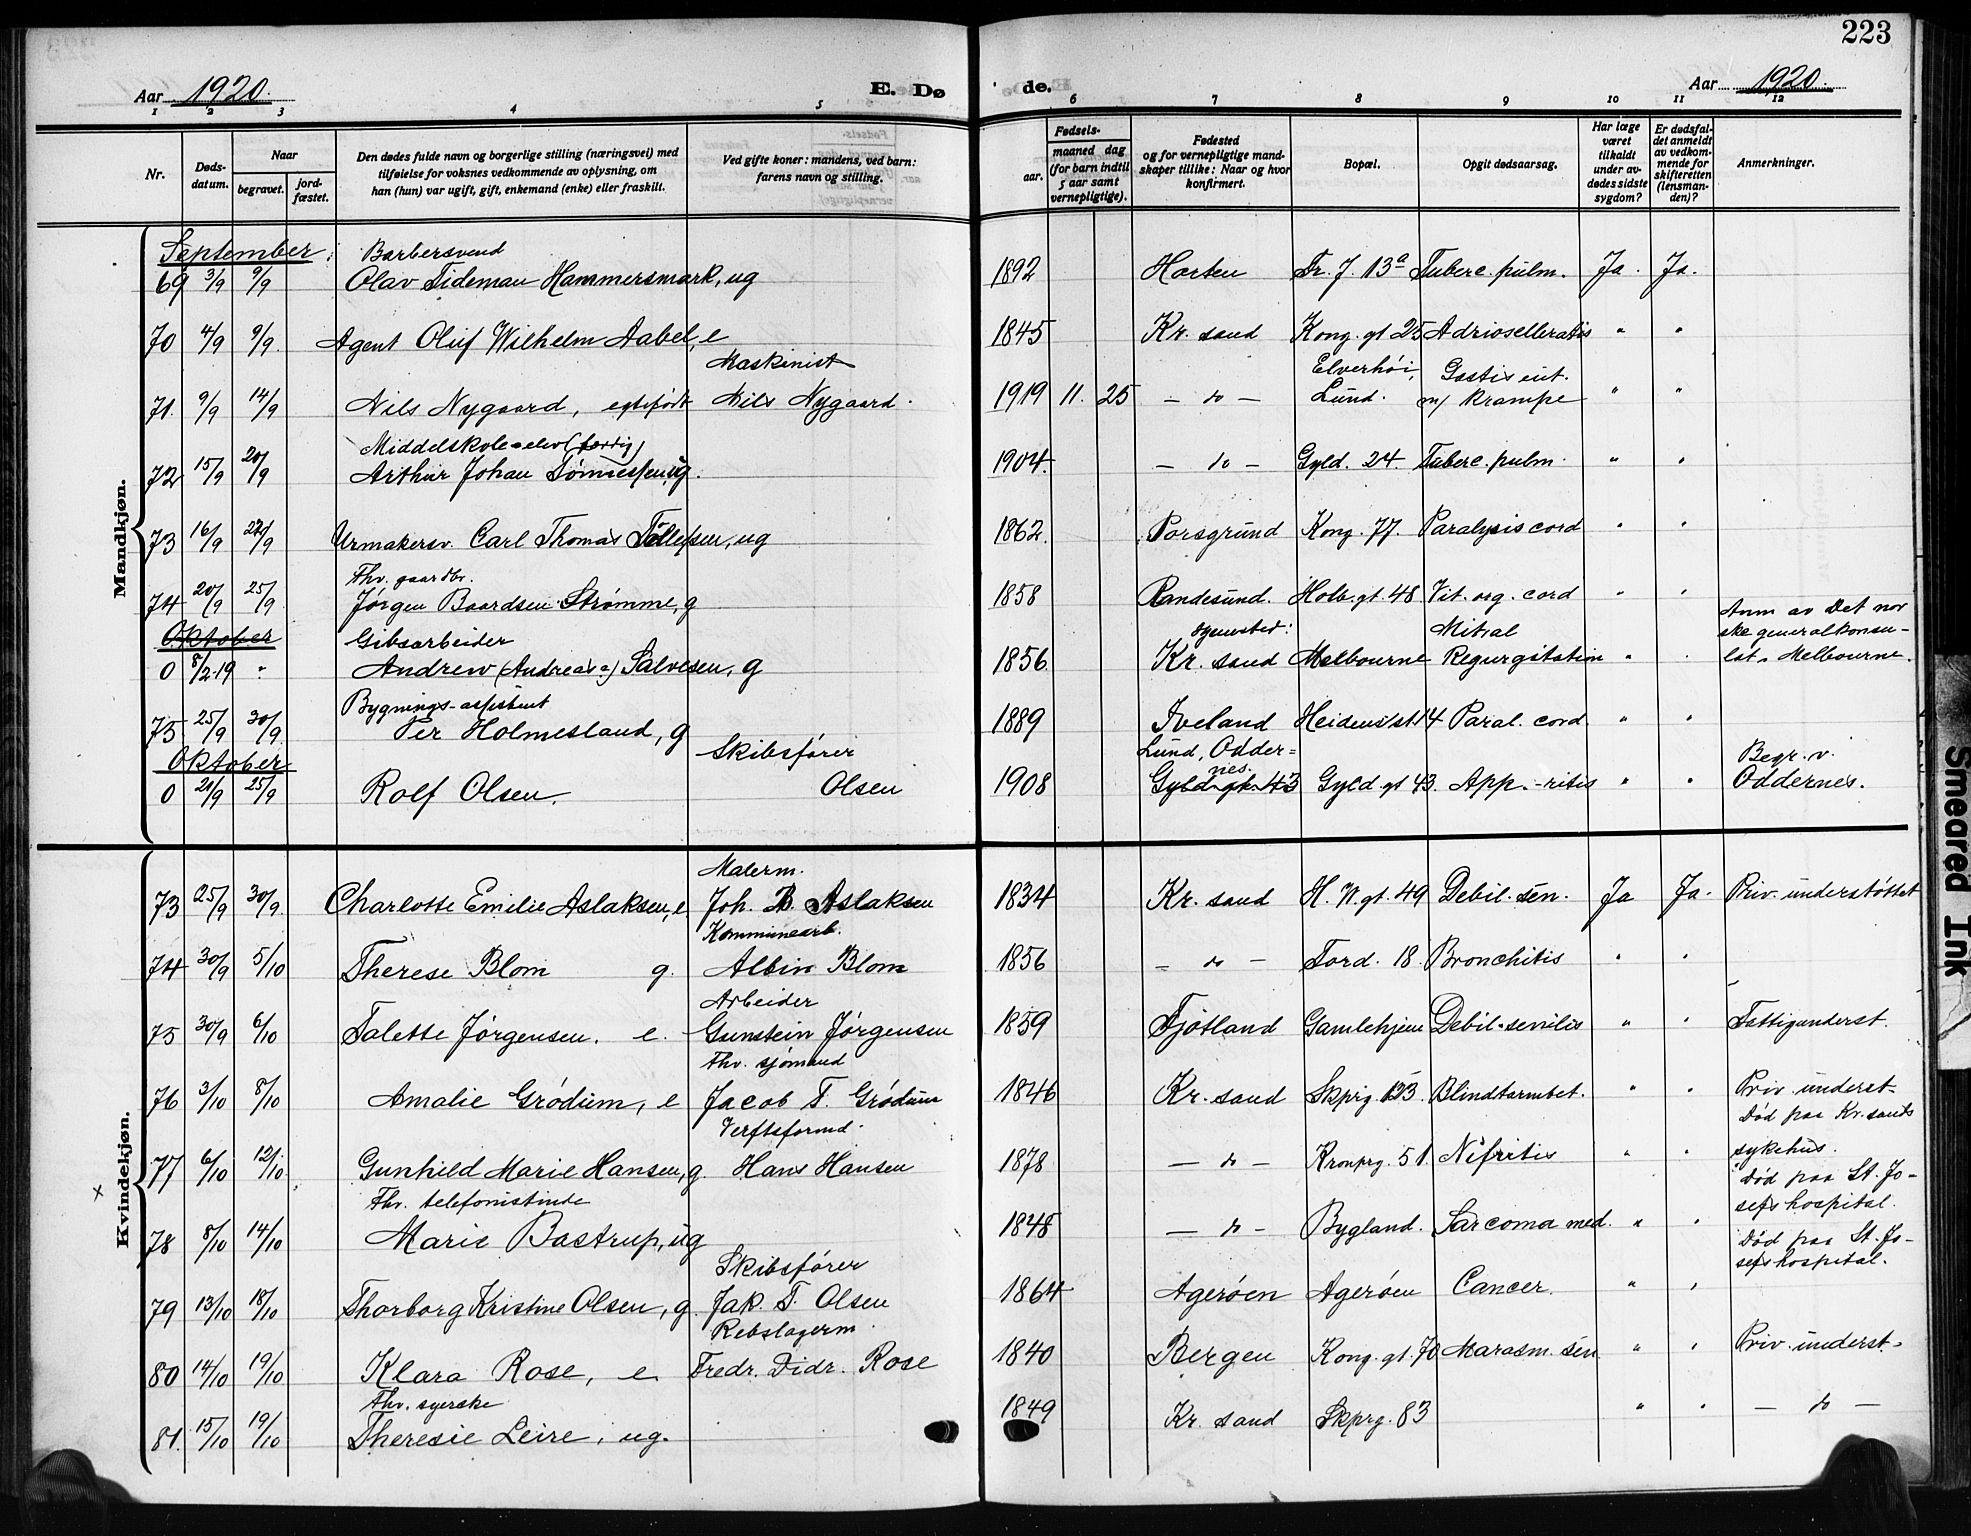 223
Aar 1920.
E. Dø
de.
Aar 1920.
1 2 3 4 5 6 7 8 9 10 11 12
Nr.
Døds-
datum.
Naar
begravet.
jord-
fæstet.
Den dødes fulde navn og borgerlige stilling (næringsvei) med
tilføielse for voksnes vedkommende av oplysning, om
han (hun) var ugift, gift, enkemand (enke) eller fraskilt.
Ved gifte koner: mandens, ved barn:
farens navn og stilling.
Fødsels-
aar.
maaned dag
(for barn indtil
5 aar samt
vernepligtige).
Fødested
og for vernepligtige mand-
skaper tillike: Naar og hvor
konfirmert.
Bopæl.
Opgit dødsaarsag.
Har læge
været
tilkaldt
under av-
dødes sidste
sygdom?
Er dødsfal-
det anmeldt
av vedkom-
mende for
skifteretten
(lensman-
den)?
Anmerkninger.
Mandkjøn.
September.
Barbersvend
69 3/9 9/9 Olav Tideman Hammersmark, ug 1892 Horten Tr. J. 13a Tuberc. pulm. Ja. Ja.
70 4/9 9/9. Agent Oluf Wilhelm Aabel, e 1845 Kr. sand Kong. gt 25 " "
Maskinist Elverhøi,
71. 9/9 14/9 Nils Nygaard, egtefødt Nils Nygaard. 1919 11. 25 — do — Lund. m/ Krampe " "
Middelskole-elev (færdig)
72 15/9 20/9 Arthur Johan Tønnessen, ug. 1904. — do — Gyld. 24 Tuberc. pulm. " "
73 16/9 22/9 Urmakersv. Carl Thomas Tellefsen, ug 1862. Porsgrund Kong. 77. Paralysis cord " "
Fhv. gaardbr.
74 20/9 25/9 Jørgen Baardsen Strømme, g 1858 Randesund. Holb. gt 48 Vit. org. cord " "
Oktober Gibsarbeider Mitral Anm av Det nor
ske generalkonsu-
0 8/2.19 " Andrew (Andreas) Salvesen, g 1856. Kr. sand Melbourne Regurgitation " " lat. Melbourne.
Bygnings-assistent
75 25/9 30/9. Per Holmesland, g 1889 Iveland Heidenst. 14 Paral. cord " "
Oktober Skibsfører Lund, Odder-
nes. Begr. v.
0 21/9 25/9 Rolf Olsen. Olsen 1908 Gyld. gt. 43 Gyld gt 43. App.-ritis " " Oddernes.
Kvindekjøn.
Malerm.
73 25/9 30/9. Charlotte Emilie Aslaksen, e. Joh. B Aslaksen 1834 Kr. sand H. W. gt. 49 Debil. sen. Ja Ja. Priv. understøttet
Kommunearb.
74 30/9 5/10 Therese Blom g. Albin Blom 1856 — do — Tord. 18. Bronchitis " "
Arbeider
75 30/9 6/10 Talette Jørgensen. e. Gunstein Jørgensen 1859 Fjotland Gamlehjem Debil. senilis " " Fattigunderst.
Fhv. sjømand
76 3/10 8/10 Amalie Grødum, e Jacob T. Grødum 1846 Kr. sand Skprg. 133. Blindtarmbet. " " Priv. underst.
Verftsformd. Død paa Kr. sands
77 6/10 12/10 Gunhild Marie Hansen, g. Hans Hansen 1878 — do — Kronprg. 51. Nefritis " " sykehus.
Fhv. telefonistinde Død paa St. Jo-
sefs hospital.
78 8/10 14/10 Marie Bastrup, ug 1848 — do — Bygland. Sarcoma med. " "
Skibsfører Død paa St. Jo-
sefs hospital.
79 13/10 18/10 Thorborg Kristine Olsen, g. Jak. T. Olsen 1864 Agerøen Agerøen Cancer. " "
Rebslagerm.
80 14/10 19/10 Klara Rose, e Fredr. Didr. Rose 1840 Bergen Kong. gt. 70 Marasm. sen " " Priv. underst.
Fhv. syerske
81. 15/10 19/10 Theresie Leire, ug. 1849 Kr. sand Skprg. 83 " " — do —
Smeared Ink